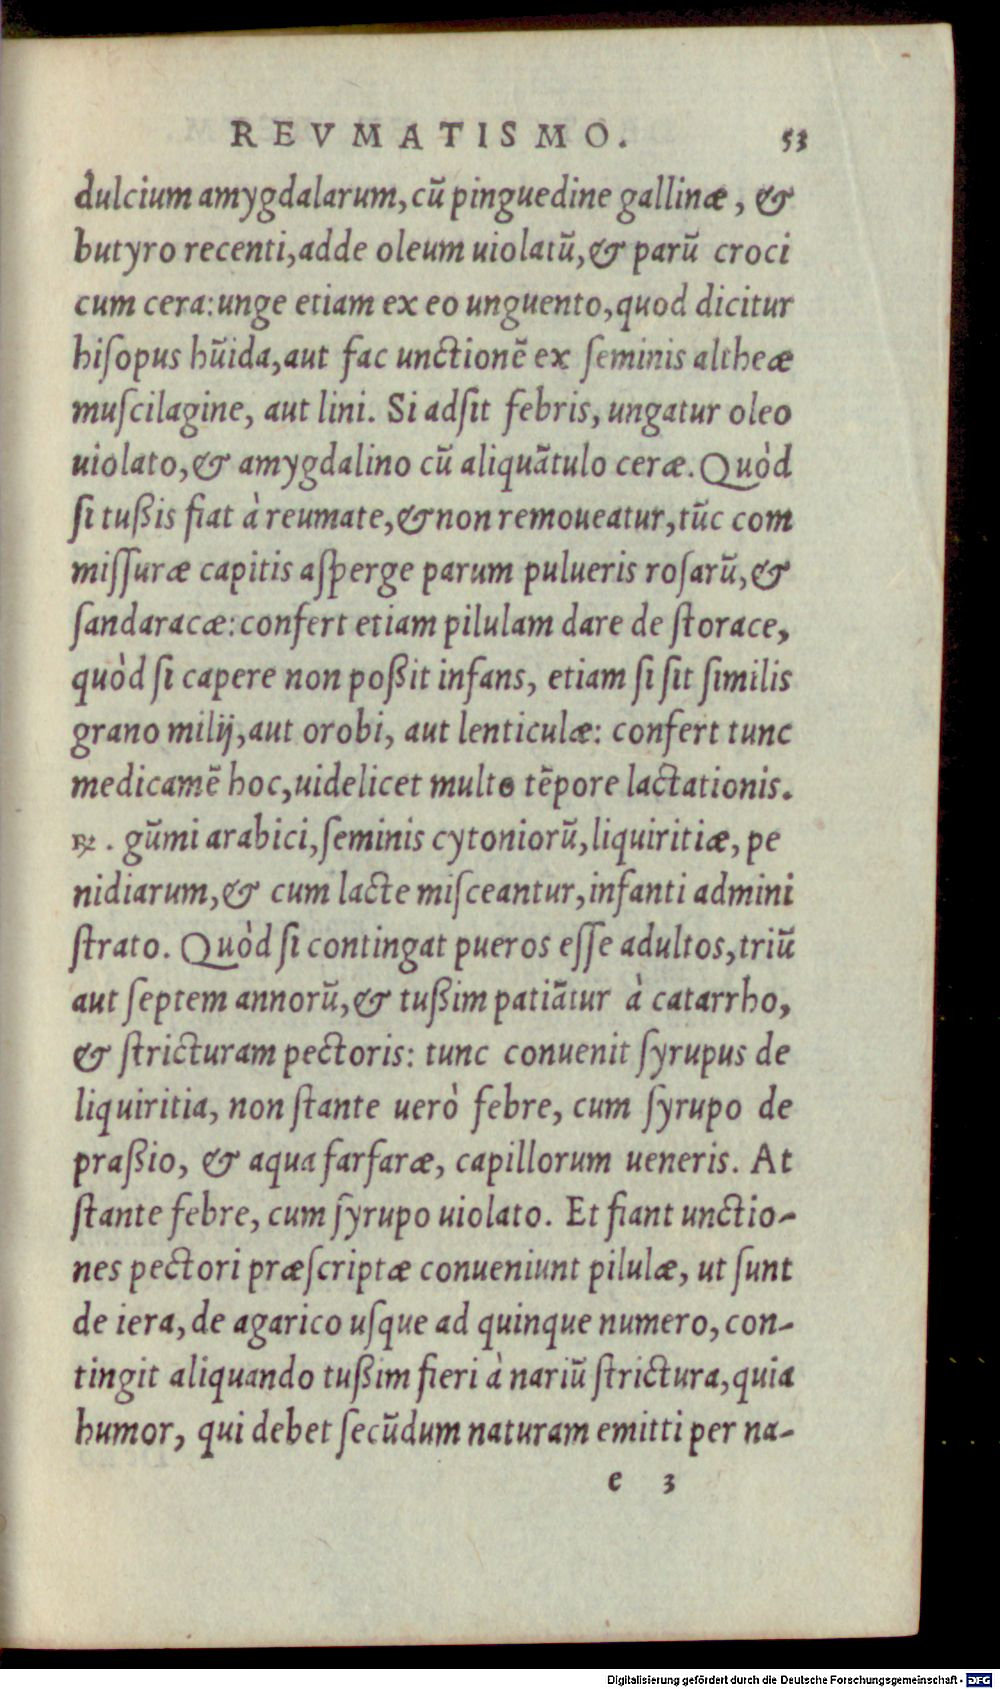 REVMATISMO. 53
dulcium amygdalarum, cũ pinguedine gallinæ, &
butyro recenti, adde oleum uiolatũ, & parũ croci
cum cera: unge etiam ex eo unguento, quod dicitur
hiſopus hũida, aut fac unctionẽ ex ſeminis altheæ
muſcilagine, aut lini. Si adſit febris, ungatur oleo
uiolato, & amygdalino cũ aliquãtulo ceræ. Quòd
ſi tußis fiat à reumate, & non remoueatur, tũc com
miſſuræ capitis aſperge parum pulueris roſarũ, &
ſandaracæ: confert etiam pilulam dare de ſtorace,
quòd ſi capere non poßit infans, etiam ſi ſit ſimilis
grano milij, aut orobi, aut lenticulæ: confert tunc
medicamẽ hoc, uidelicet multo tẽpore lactationis.
℞. gũmi arabici, ſeminis cytoniorũ, liquiritiæ, pe
nidiarum, & cum lacte miſceantur, infanti admini
ſtrato. Quòd ſi contingat pueros eſſe adultos, triũ
aut ſeptem annorũ, & tußim patiãtur à catarrho,
& ſtricturam pectoris: tunc conuenit ſyrupus de
liquiritia, non ſtante uerò febre, cum ſyrupo de
praßio, & aqua farfaræ, capillorum ueneris. At
ſtante febre, cum ſyrupo uiolato. Et fiant unctio-
nes pectori præſcriptæ conueniunt pilulæ, ut ſunt
de iera, de agarico uſque ad quinque numero, con-
tingit aliquando tußim fieri à nariũ ſtrictura, quia
humor, qui debet ſecũdum naturam emitti per na-
e 3
Digitalisierung gefördert durch die Deutsche Forschungsgemeinschaft - DFG